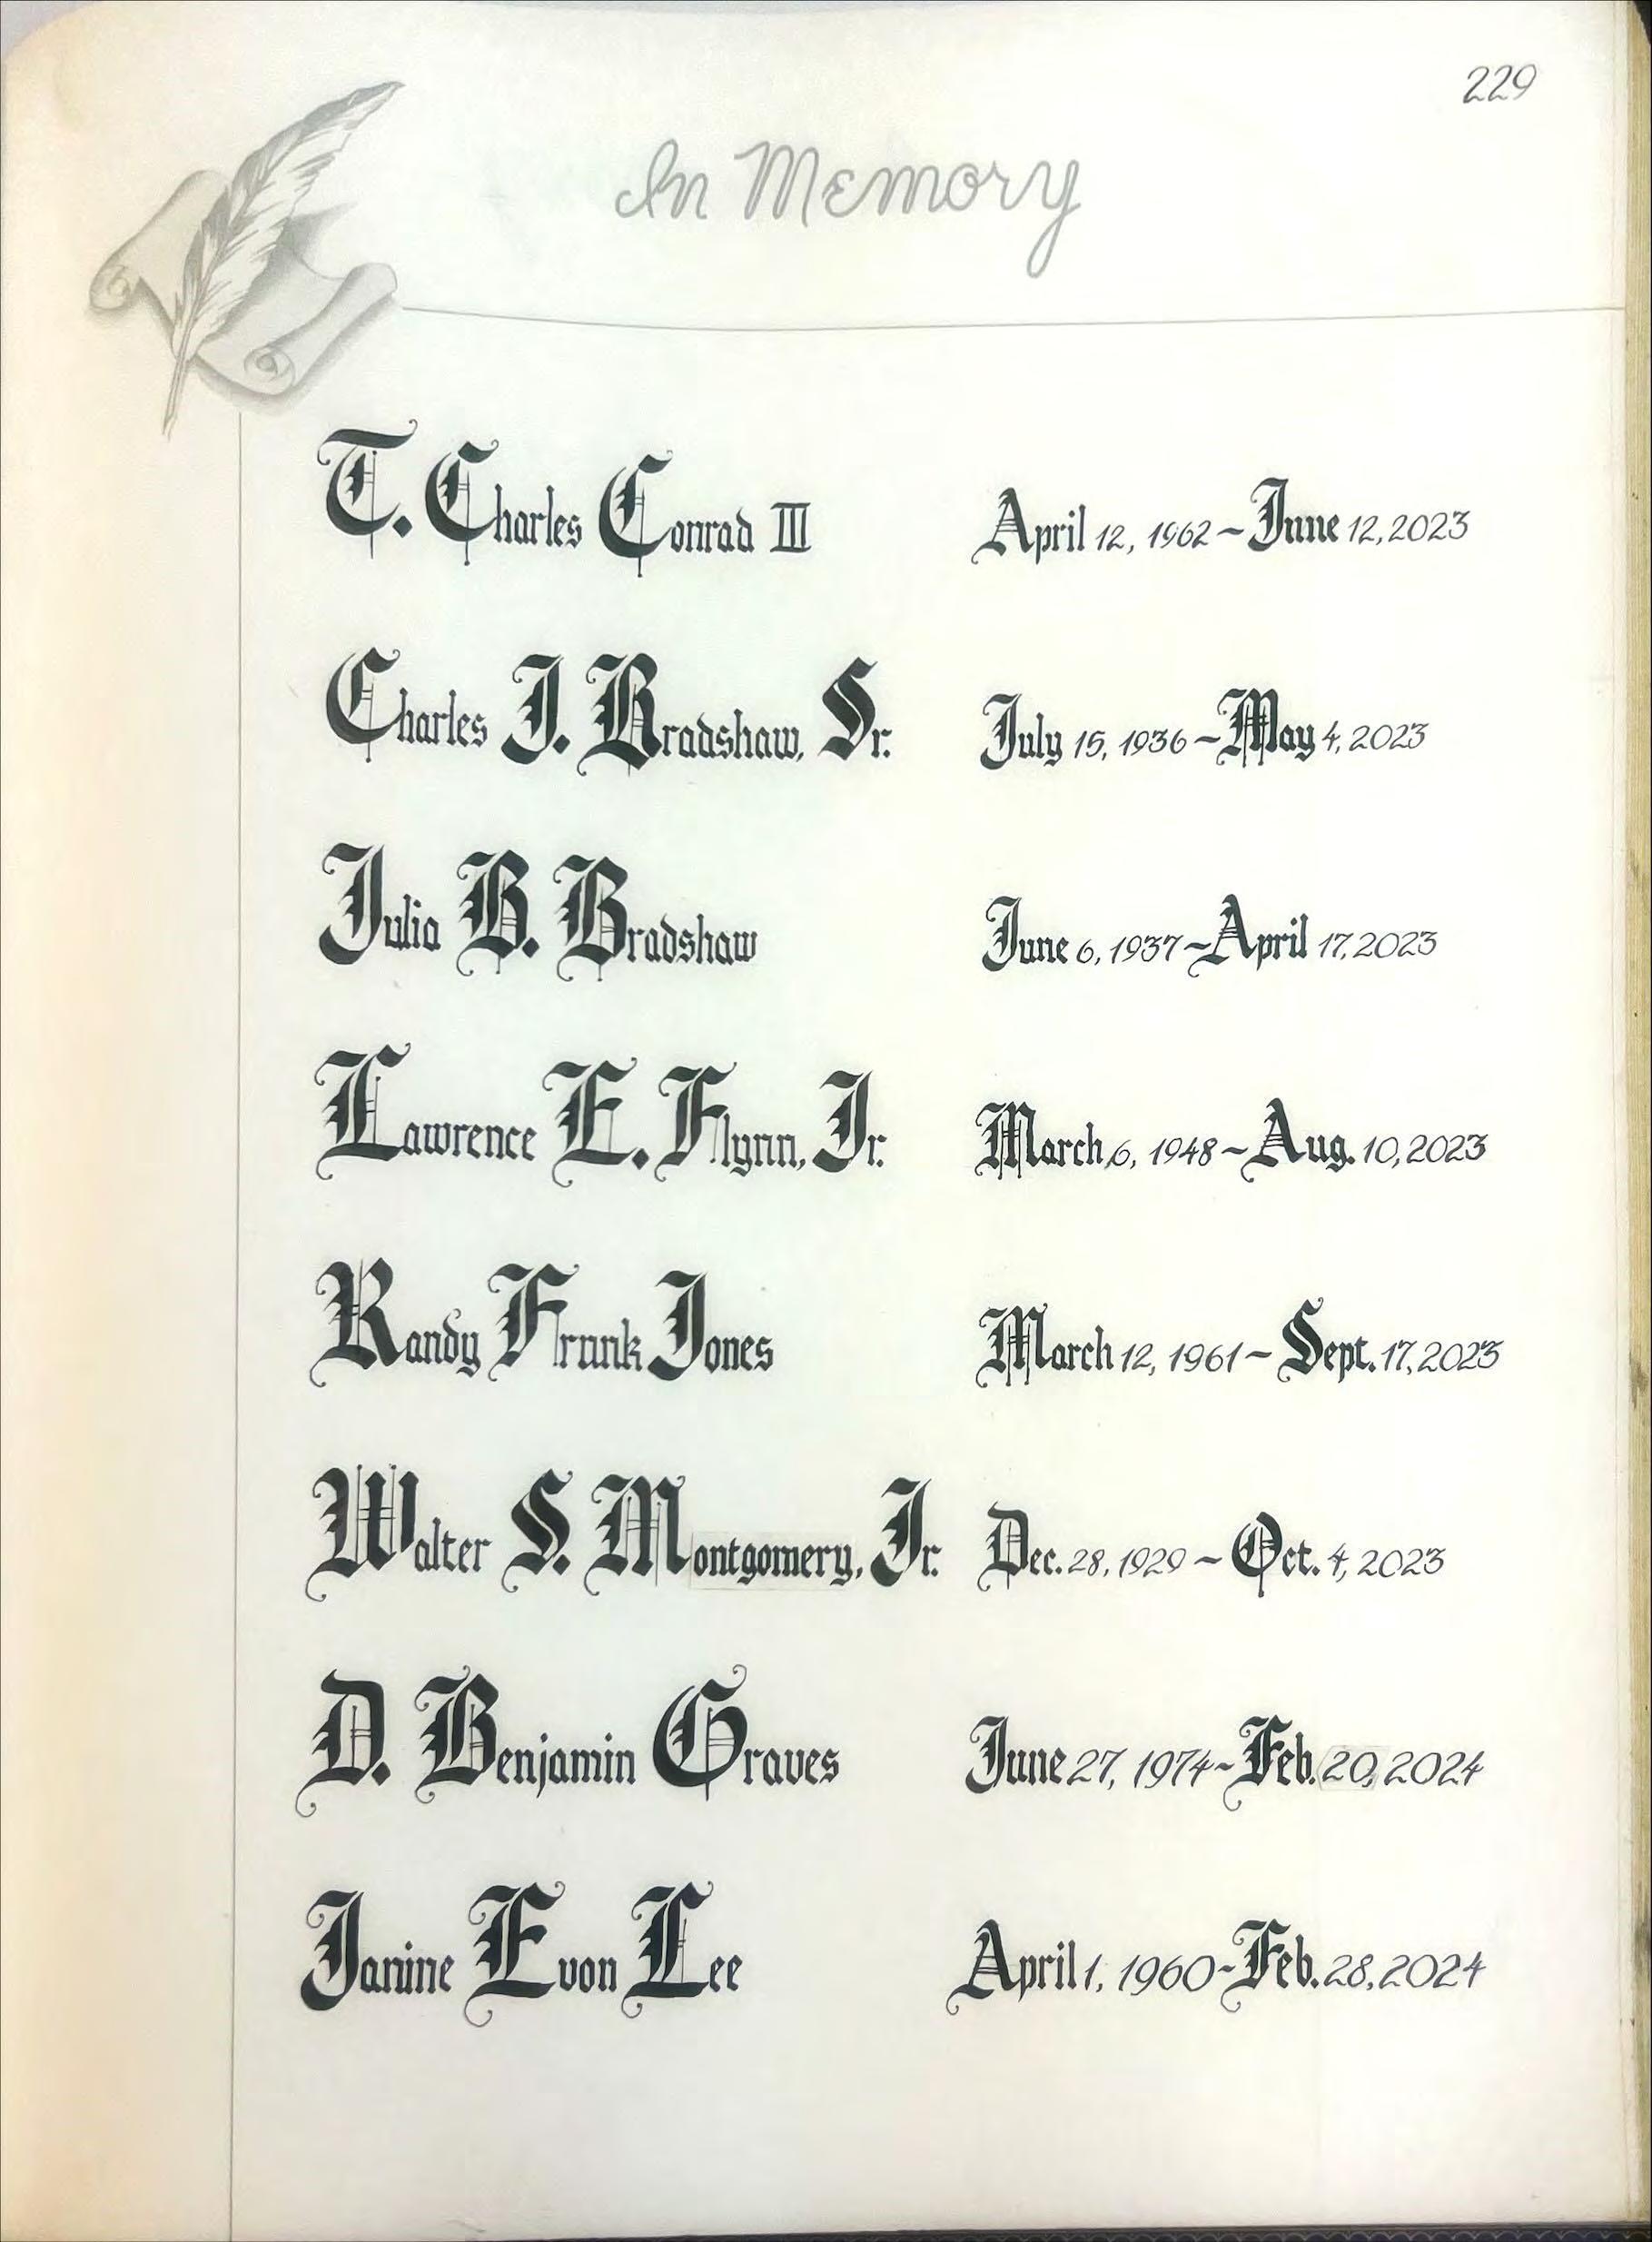 229
In Memory
T. Charles Conrad III April 12, 1962 ~ June 12, 2023
Charles J. Bradshaw, Sr. July 15, 1936 ~ May 4, 2023
Julia B. Bradshaw June 6, 1937 ~ April 17, 2023
Lawrence E. Flynn, Jr. March 6, 1948 ~ Aug. 10, 2023
Randy Frank Jones March 12, 1961 ~ Sept. 17, 2023
Walter S. Montgomery, Jr. Dec. 28, 1929 ~ Oct. 4, 2023
D. Benjamin Graves June 27, 1974 ~ Feb. 20, 2024
Janine Evon Lee April 1, 1960 ~ Feb. 28, 2024